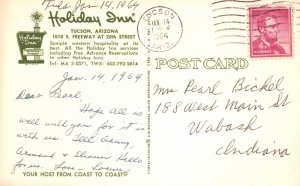 Tues Jan 14, 1964
Holiday Inn
TUCSON, ARIZONA
1010 S. FREEWAY AT 20th STREET
Sample western hospitality at its
best. All the Holiday Inn services
including Free Advance Reservations
to other Holiday Inns.
Tel: MA 2-5871, TWX: 602-792-2614
Jan. 14, 1964
Dear Pearl
Hope all is
well with you for it is
with us. Tell
and Eleanor Hello
for us.
YOUR HOST FROM COAST TO COAST
TUCSON
JAN 14
1964
ARIZ.
POST CARD
Mrs Pearl Bickel
188 West Main St
Wabash
Indiana